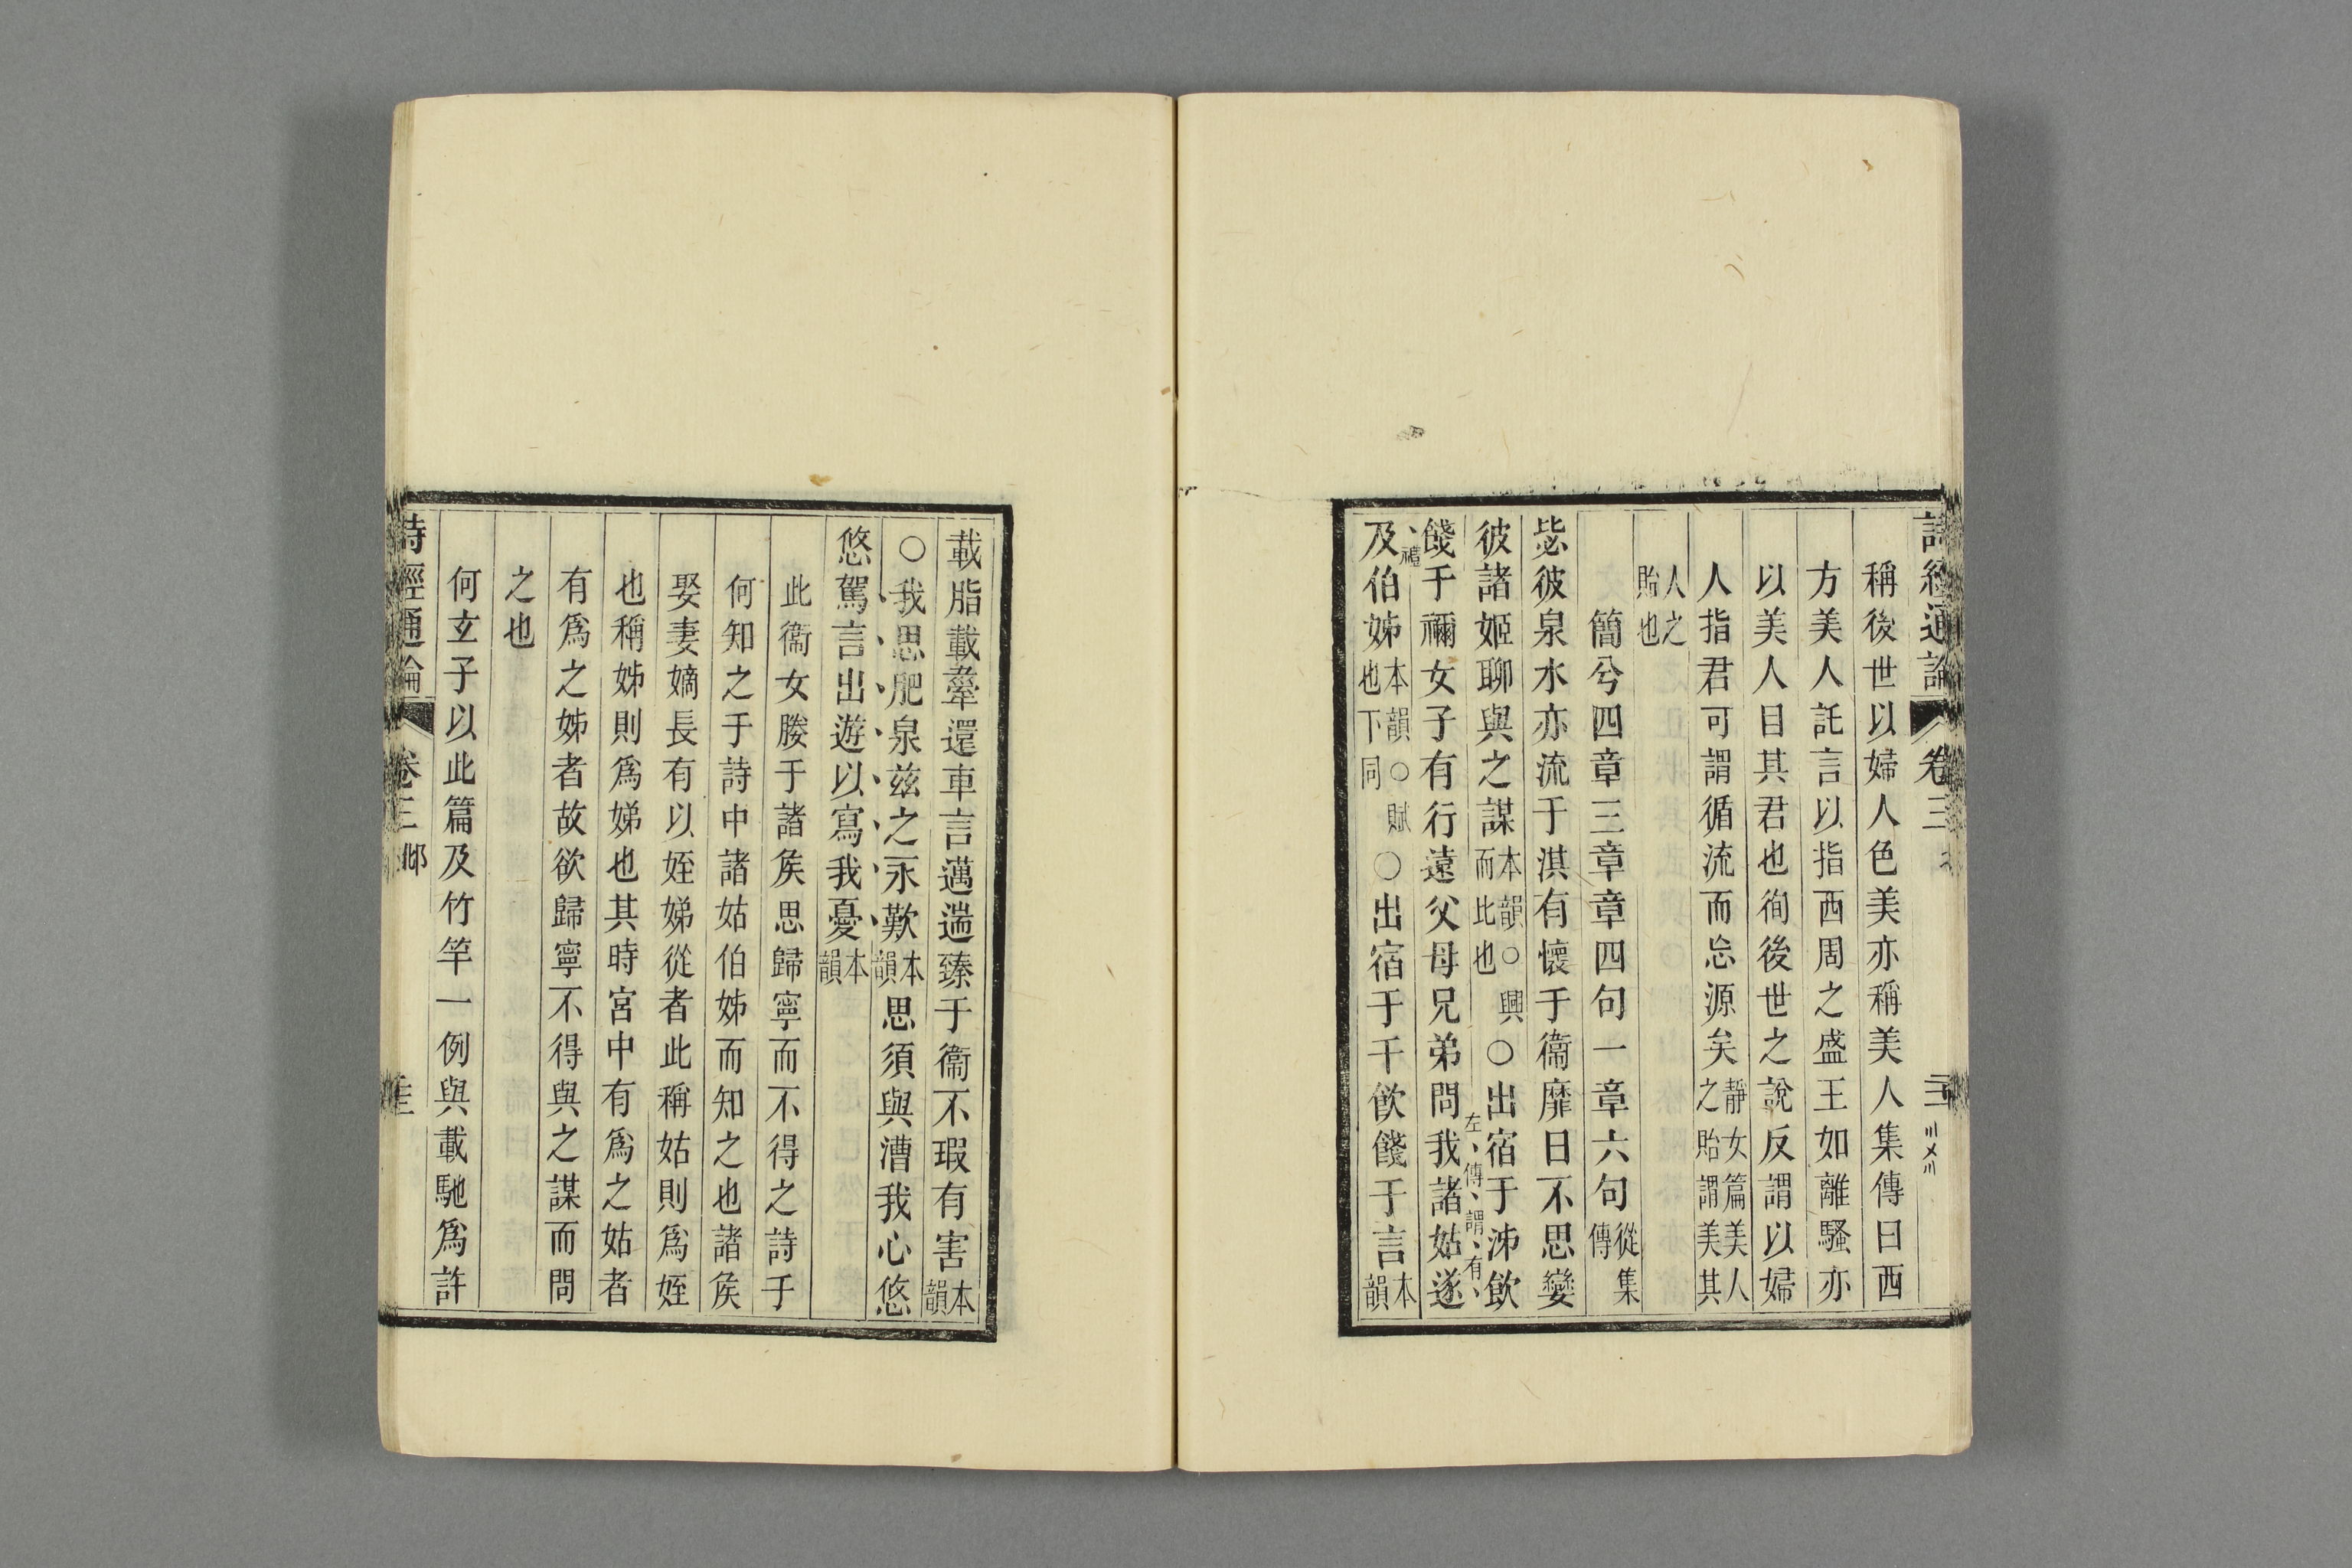 詩經通論 卷三
稱後世以婦人色美亦稱美人集傳曰西
方美人託言以指西周之盛王如離騷亦
以美人目其君也徇後世之說反謂以婦
人指君可謂循流而忘源矣靜女篇美人之貽謂美其
人之貽也
簡兮四章三章章四句一章六句從集傳
毖彼泉水亦流于淇有懷于衞靡日不思孌
彼諸姬聊與之謀本韻○興而比也○出宿于泲飲
餞于禰女子有行遠父母兄弟問我諸姑遂
左傳謂有禮
及伯姊本韻○賦也下同○出宿于干飲餞于言本韻
載脂載舝還車言邁遄臻于衞不瑕有害本韻
○我思肥泉兹之永歎本韻思須與漕我心悠
悠駕言出遊以寫我憂本韻
此衞女媵于諸矦思歸寧而不得之詩于
何知之于詩中諸姑伯姊而知之也諸矦
娶妻嫡長有以姪娣從者此稱姑則爲姪
也稱姊則爲娣也其時宮中有爲之姑者
有爲之姊者故欲歸寧不得與之謀而問
之也
何玄子以此篇及竹竿一例與載馳爲許
詩經通論 卷三 邶